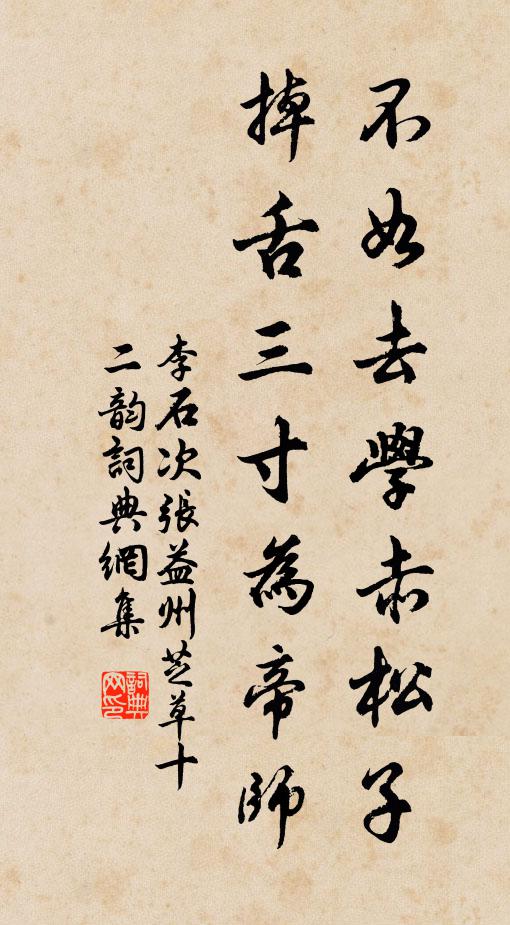 不如去學赤松子
掉舌三寸為帝師
李石次張益州芝草十
二韵詞典網集
詞典
网印